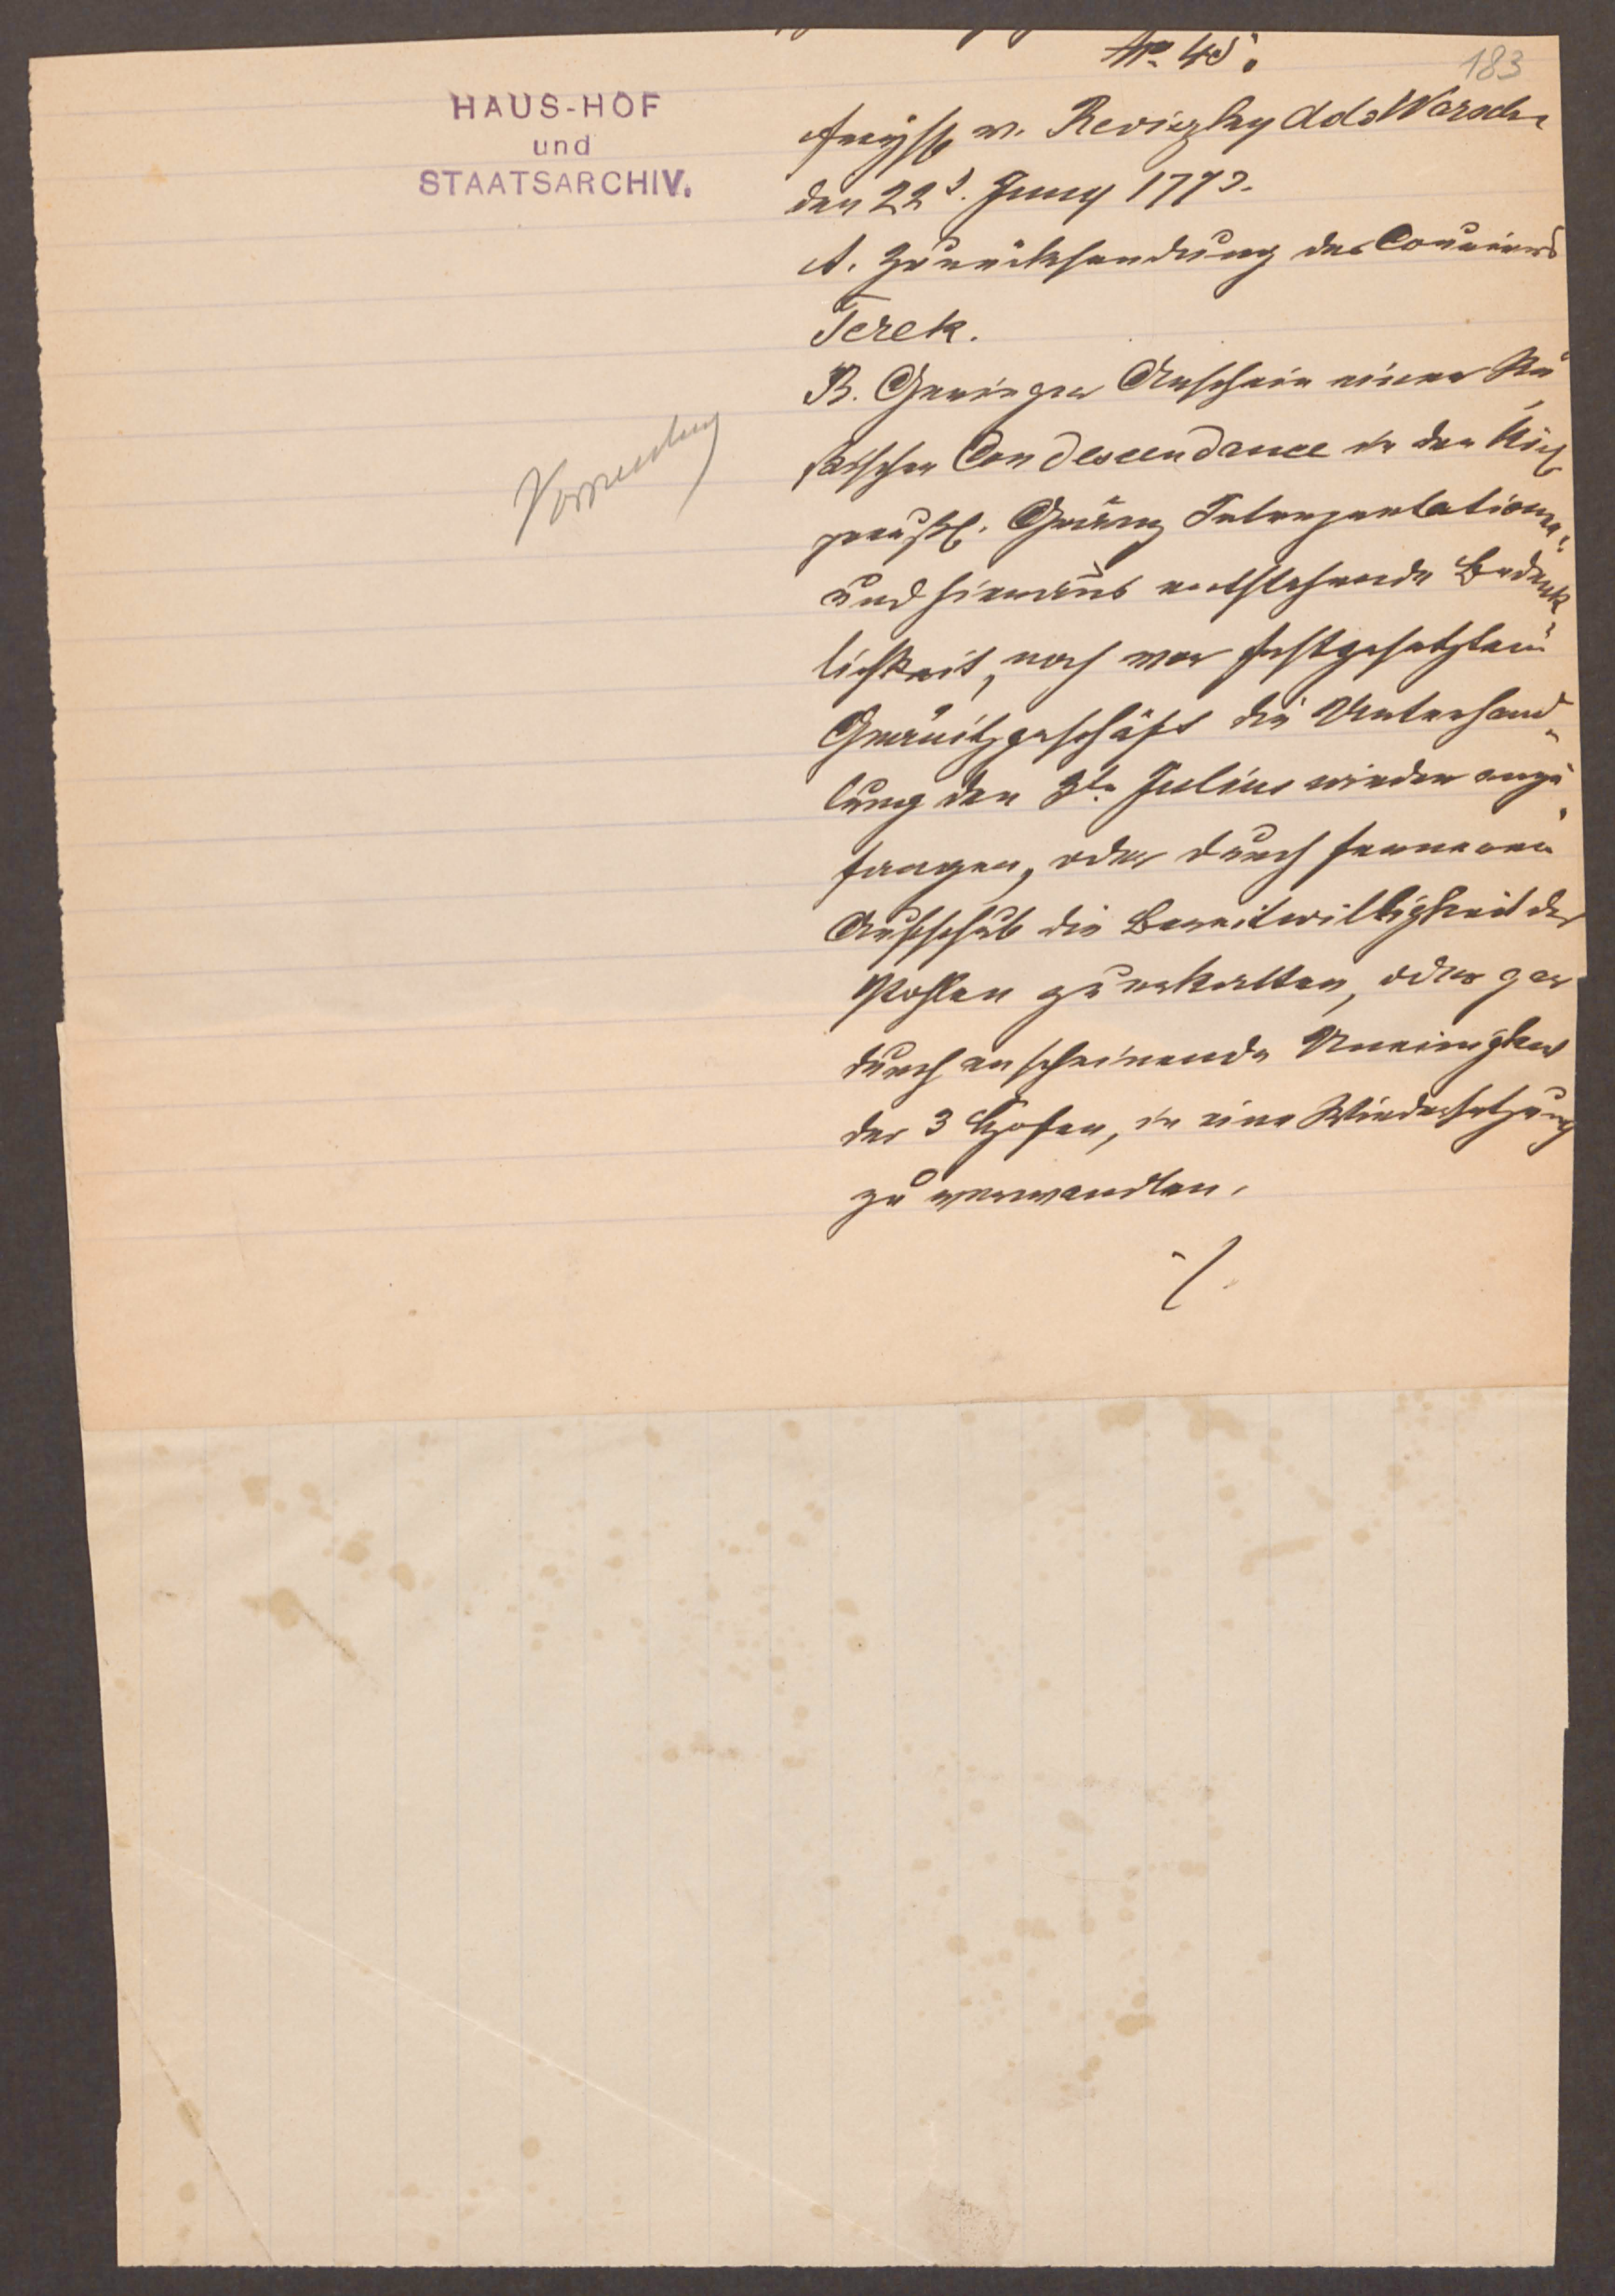 No. 45.
183
HAUS-HOF
und
STAATSARCHIV.
v. Reviczky ddo Warschau
den 22t. Juny 1773.
A. Zurücksendung des Couriers
Terek.
B. Geringer Anschein einer Ru
ßischen Condescendance in den
preußl. Gränz Interpretationen,
und hieraus entstehende Bedenk-
lichkeit, noch vor festgesetztem
Gränitzgeschäft die Unterhand-
lung den 3te Julius wieder anzu
fangen, oder durch ferneren
Aufschub die Bereitwilligkeit der
Pohlen zu erkalten, oder gar
durch anscheinende Uneinigkeit
der 3 Höfen, in eine Wiedersetzung
zu verwandlen.
./.